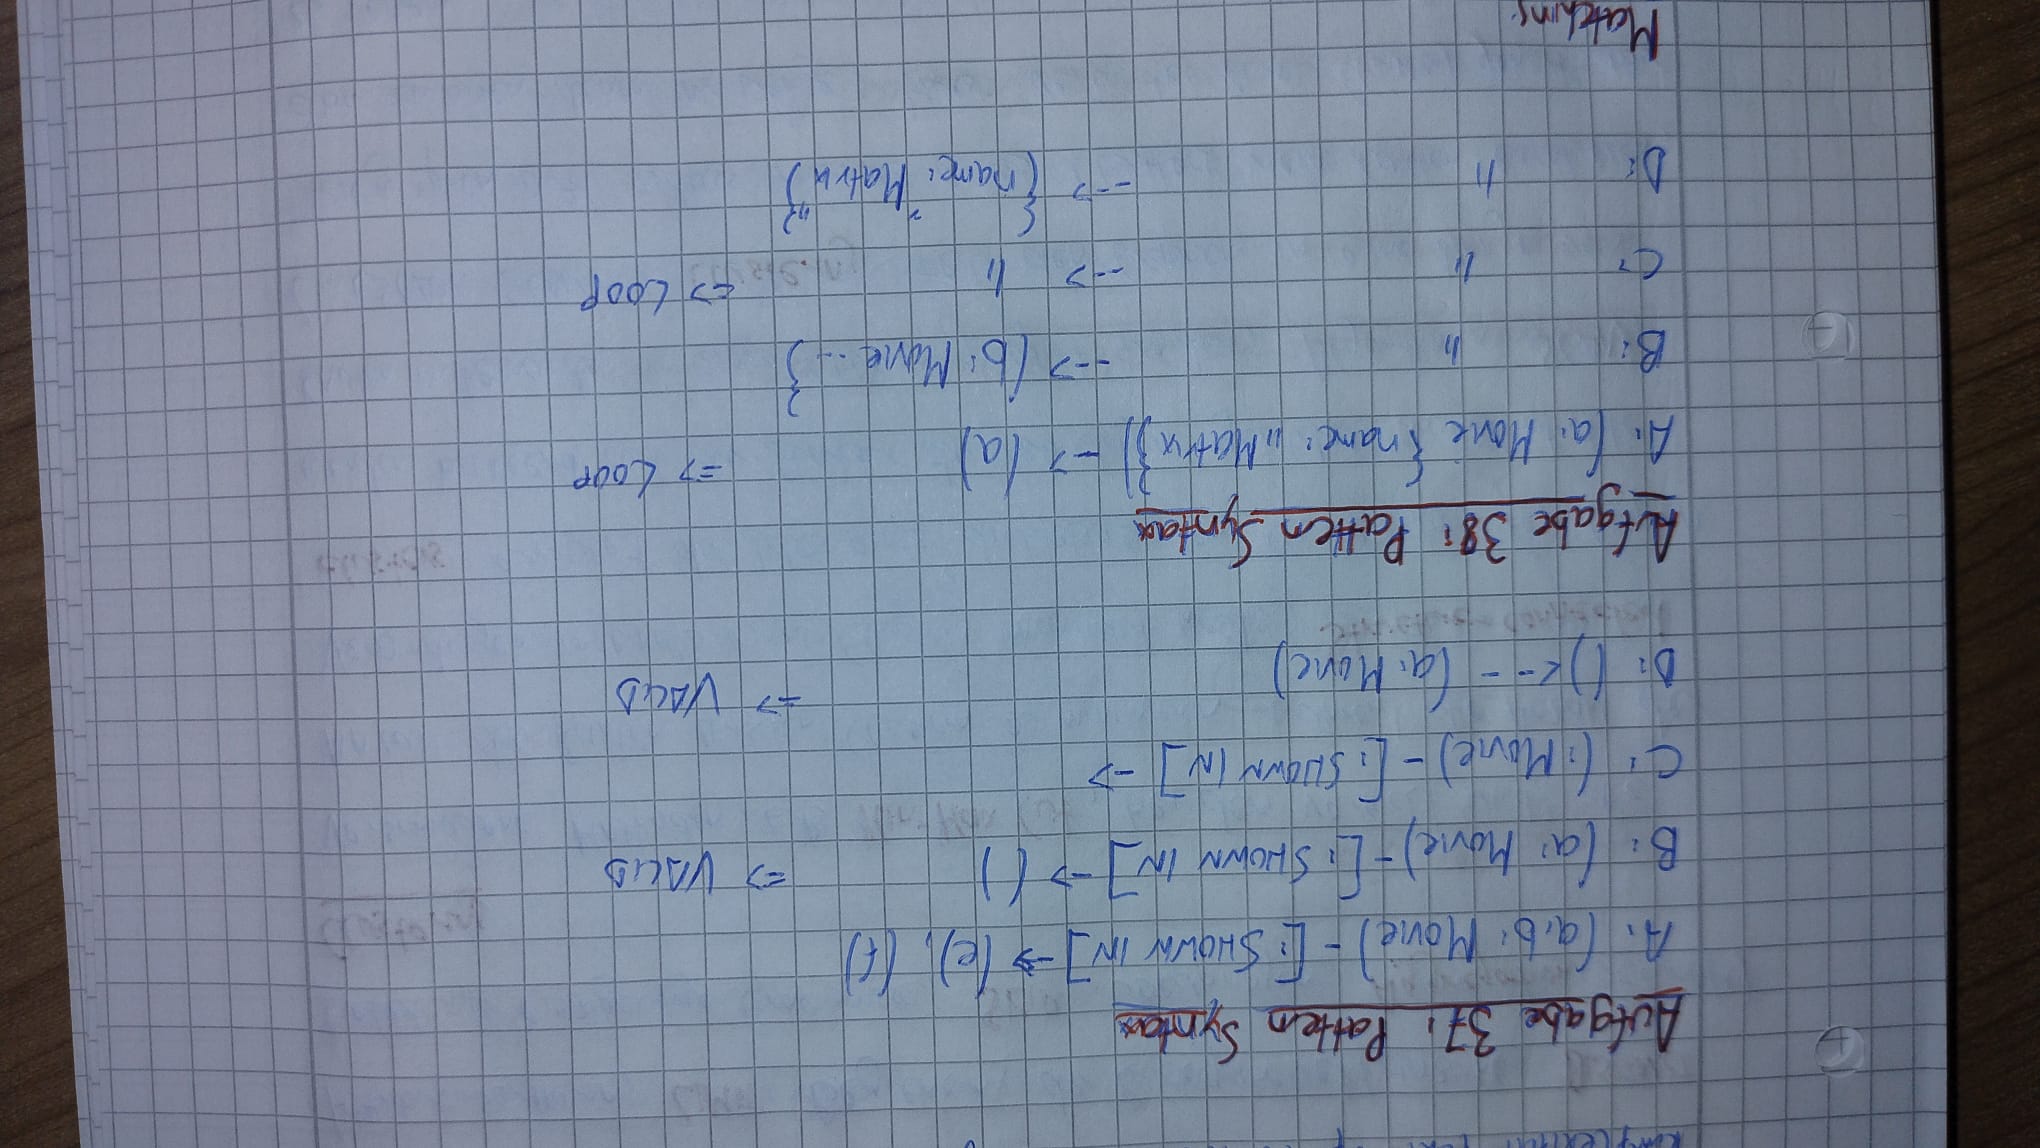 Aufgabe 37: Pattern Syntax
A: (a,b: Movie) - [: SHOWN IN] -> (e), (f)
B: (a: Movie) - [: SHOWN IN] -> () => VALID
C: (: Movie) - [: SHOWN IN] ->
D: () <-- (a: Movie) => VALID
Aufgabe 38: Pattern Syntax
A: (a: Movie {name: „Matrix}) --> (a) => LOOP
B: " --> (b: Movie ... }
C: " --> " => LOOP
D: " --> {name: "Matrix"}
Matching